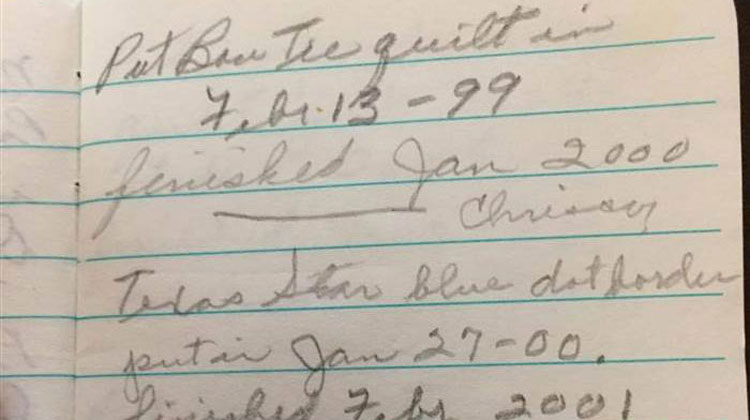 Put Bow Tie quilt in
Febr. 13 - 99
finished Jan 2000
Chrissy
Texas Star blue dot border
put in Jan 27-00.
finished Febr 2001